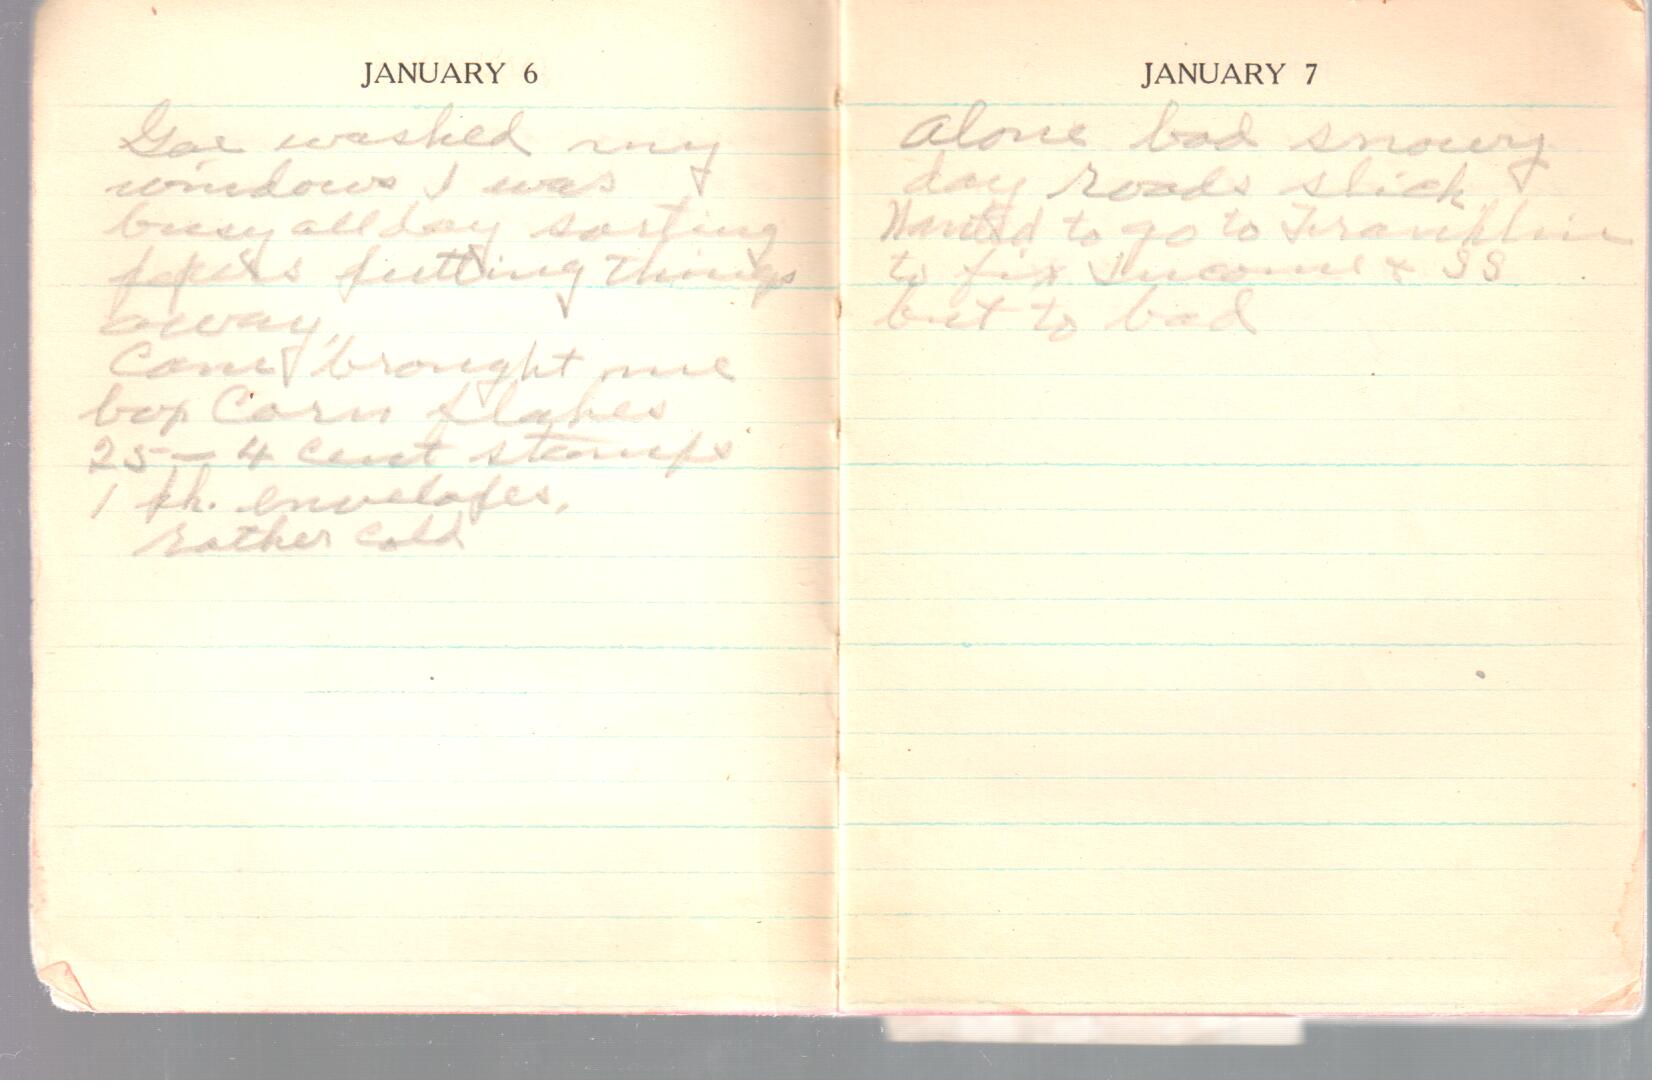 JANUARY 6
washed my
windows I was
busy all day sorting
papers putting things
away,
brought me
box Corn flakes
25 - 4 cent stamps
1 pk. envelopes.
rather cold
JANUARY 7
Alone bad snowy
day roads slick
Wanted to go to Franklin
to fix Income & SS
but to bad